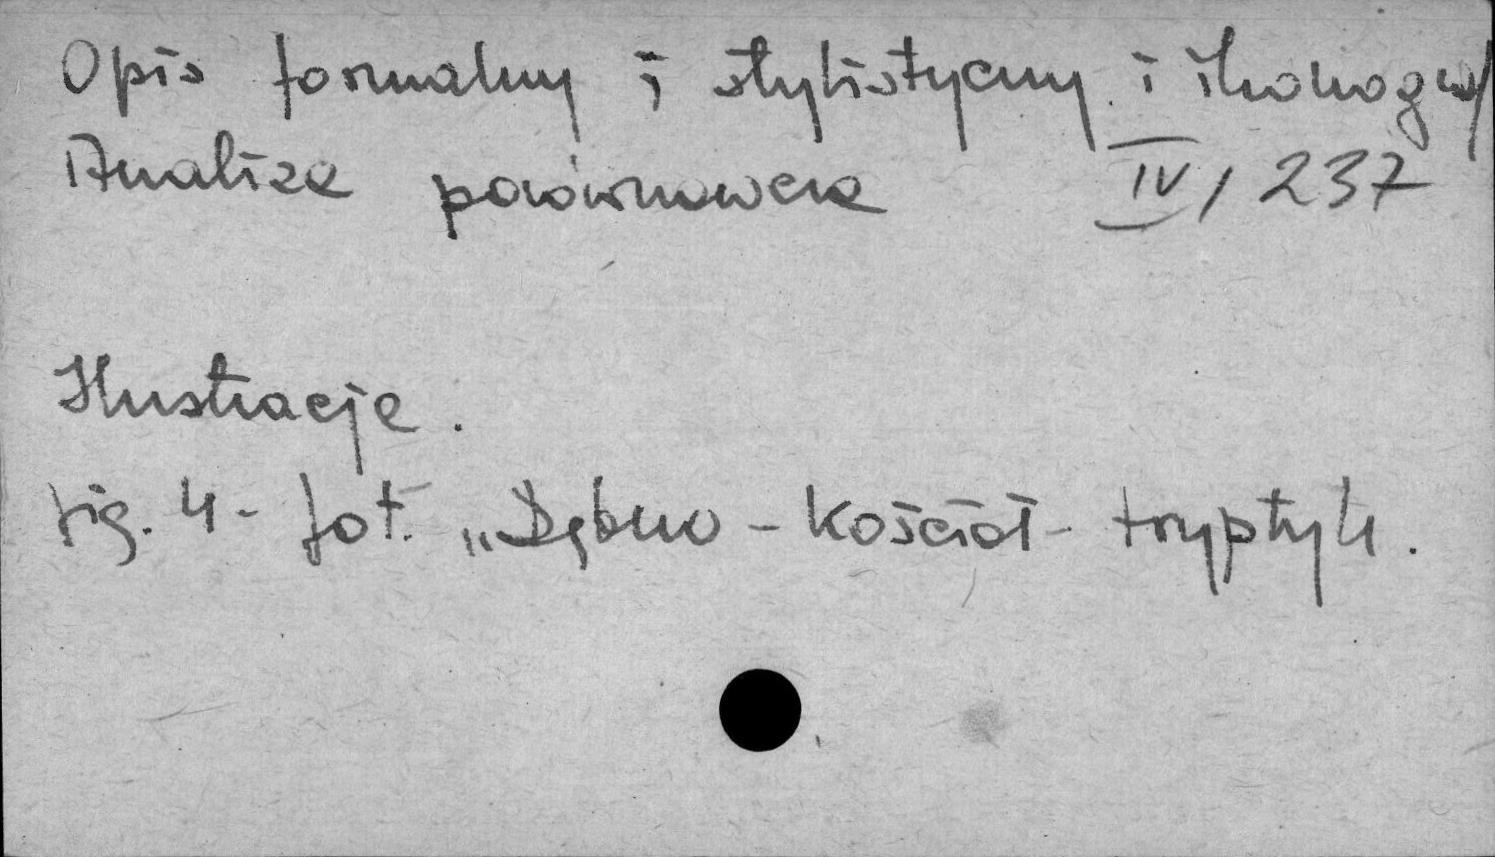 Opis formalny i stylistyczny i ikonogra/
Analiza porównawcza IV/237
Ilustracje.
fig. 4 - fot. „Dębno - Kościół - tryptyk.